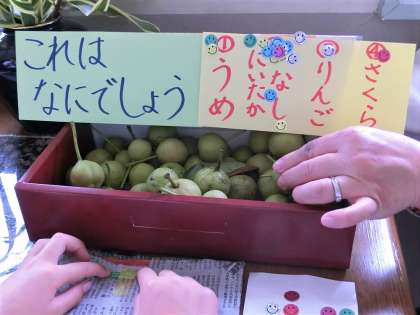 これは
なにでしょう
①うめ
②にいたか
なし
③りんご
④さくら